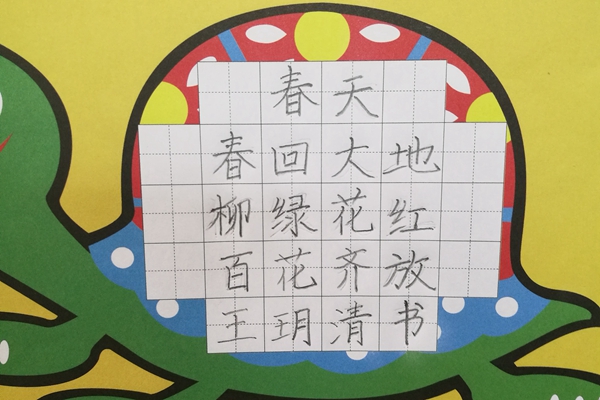 春天
春回大地
柳绿花红
百花齐放
王玥清书